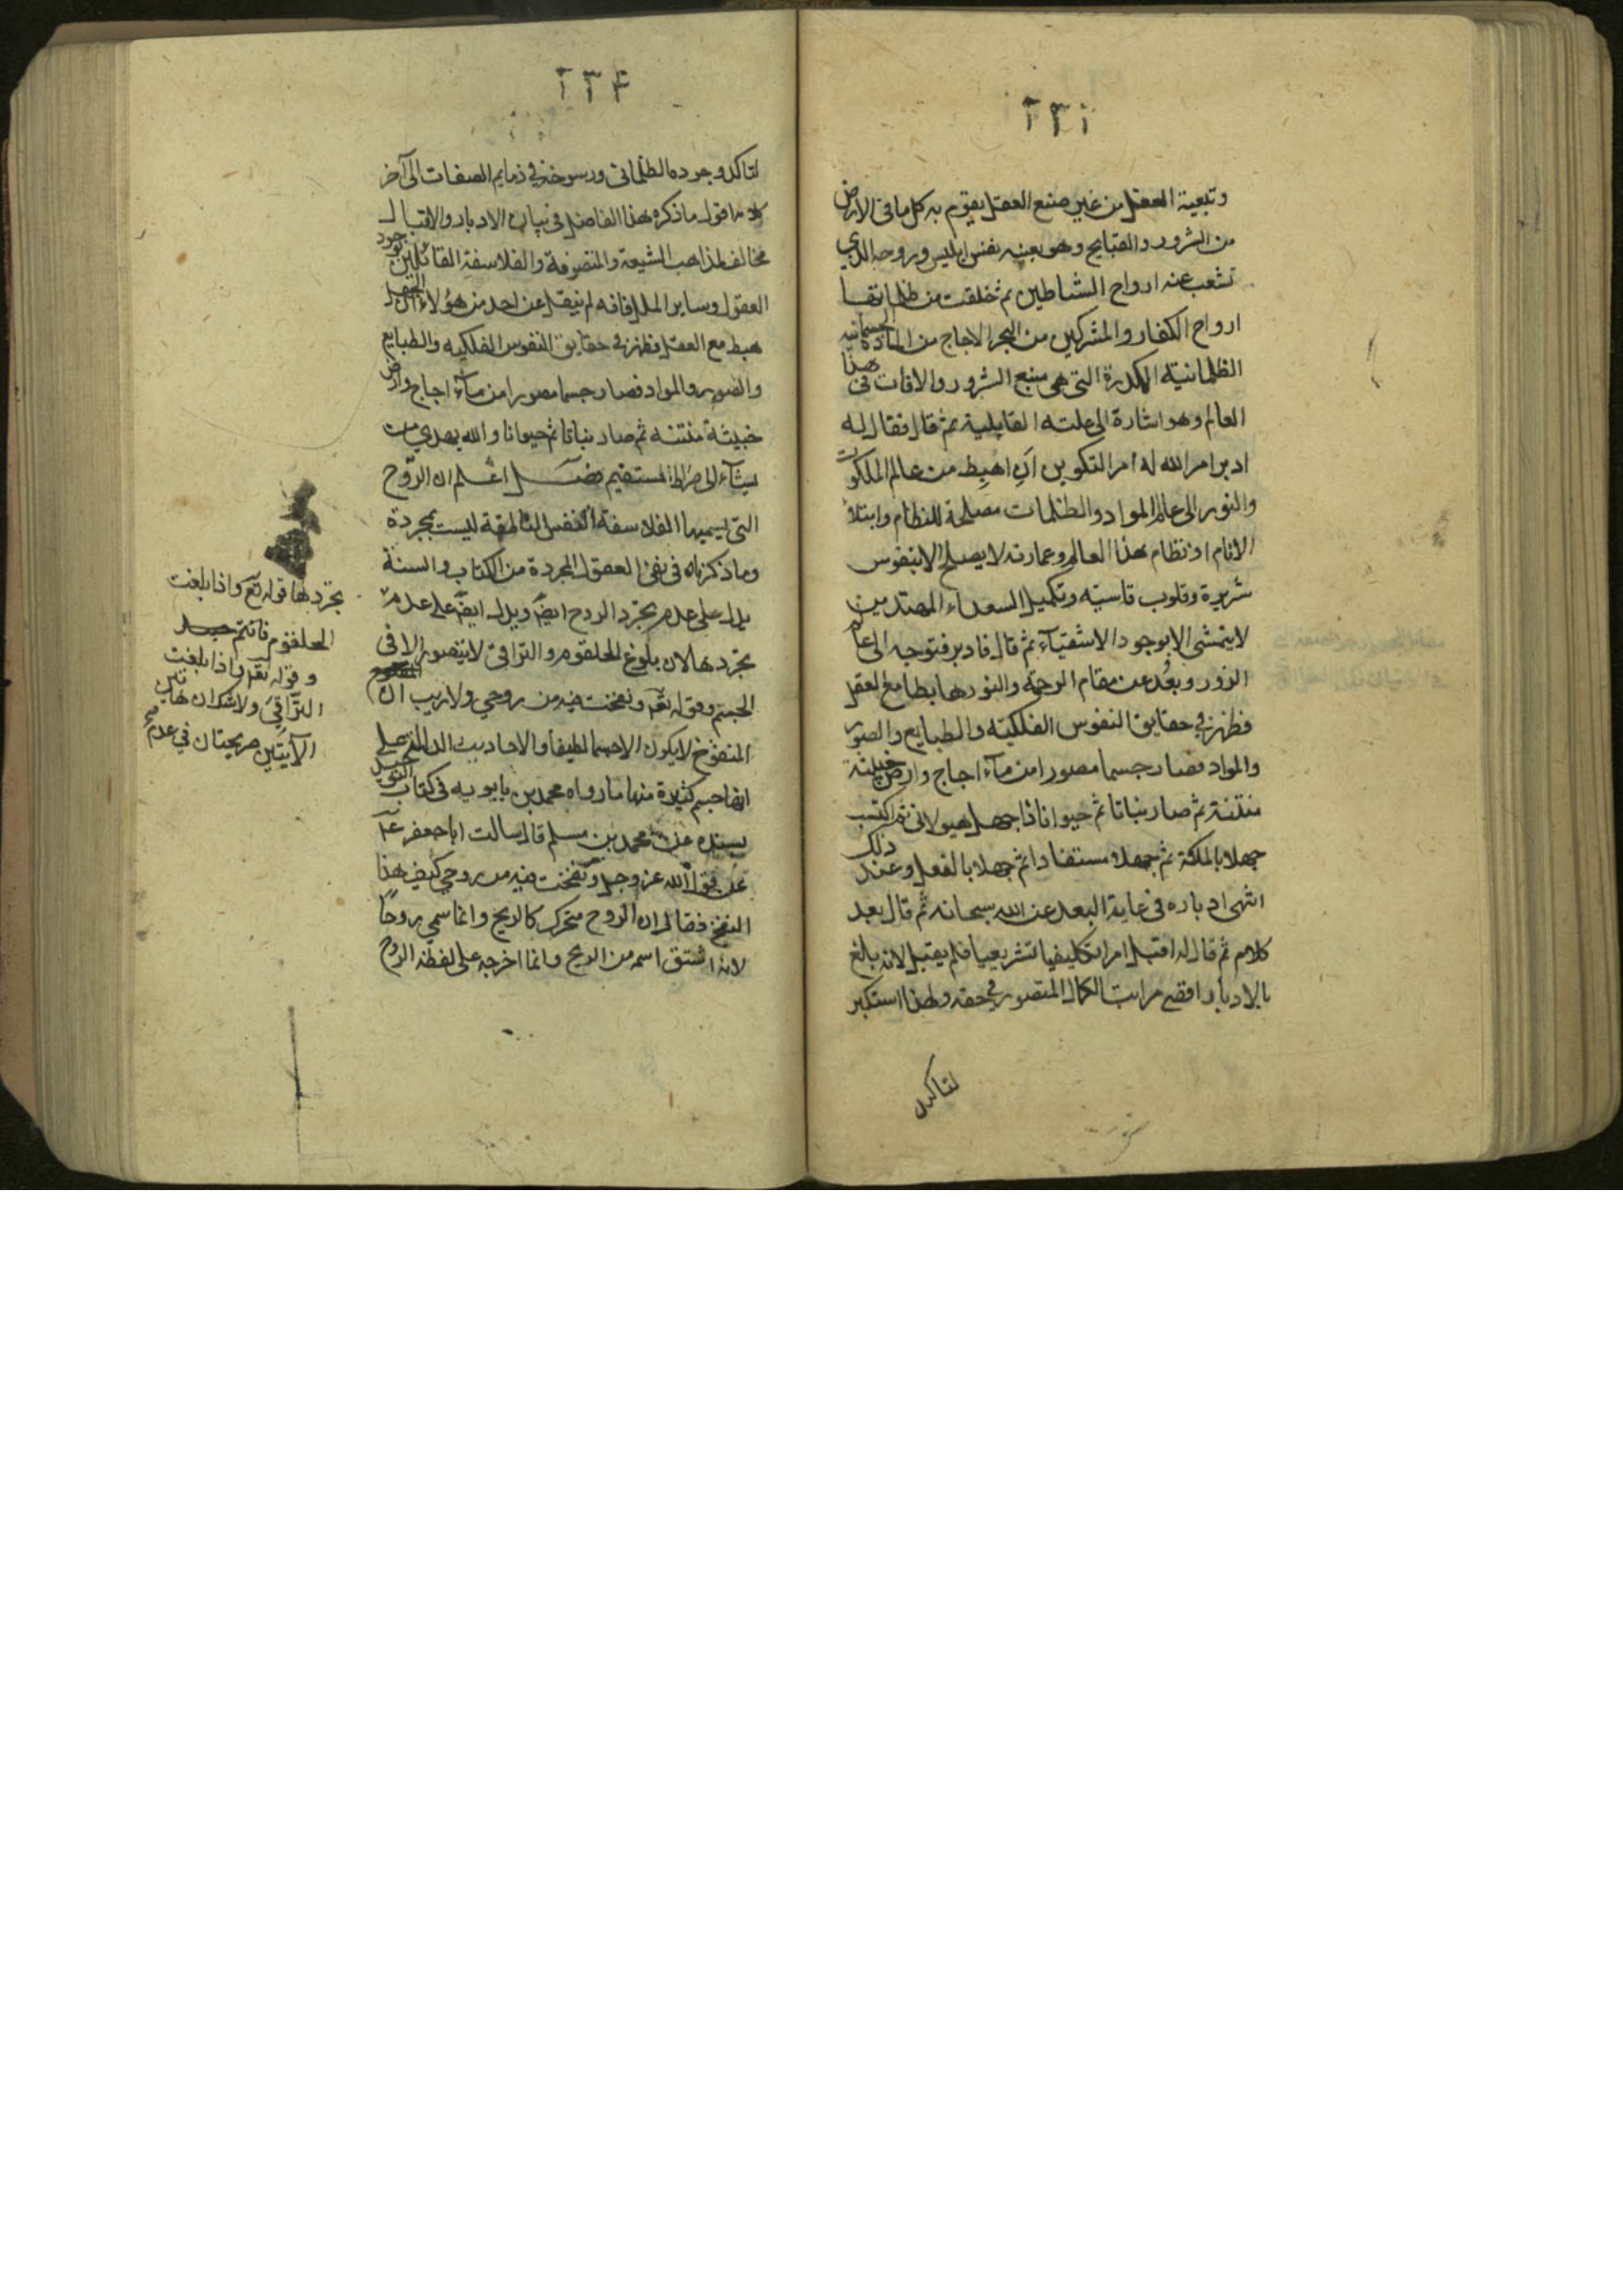 ٢٣١
وتبعية العقل من غير صنع العقل يقوم به كل ما فى الارض
من الشرور والقبايح وهو بعينه نفس ابليس وروحه الذي
تشعب عنه ارواح الشياطين ثم خلقت من ظلماتها
ارواح الكفار والمشركين من البحر الاجاج من المادة الجسمانية
الظلمانية الكدرة التى هى منبع الشرور والافات فى هذا
العالم وهو اشارة الى علته القابلية ثم قال فقال له
ادبر امر الله له امر التكوين اي اهبط من عالم الملكوت
والنور الى عالم المواد والظلمات مصلحة للنظام وابتلاء
الانام اذ نظام هذا العالم وعمارته لا يصلح الا بنفوس
شريرة وقلوب قاسية وتكميل السعداء المهتدين
لا يتمشى الا بوجود الاشقياء ثم قال فادبر فتوجه الى عالم
الزور وبعد عن مقام الرحمة والنور هابطا مع العقل
فظهر في حقايق النفوس الفلكية والطبايع والصور
والمواد فصار جسما مصورا من ماء اجاج وارض خبيثة
منتنة ثم صار نباتا ثم حيوانا ذا جهل هيولانى ثم اكتسب
جهلا بالملكة ثم جهلا مستفادا ثم جهلا بالفعل وعند ذلك
انتهى ادباره فى غاية البعد عن الله سبحانه ثم قال بعد
كلام ثم قال له اقبل امرا تكليفيا تشريعيا فلم يقبل لانه بالغ
بالادبار اقصى مراتب الكمال المتصور في حقه ولهذا استكبر
لتاكد
٢٣٢
لتاكد وجوده الظلمانى ورسوخه في ذمايم الصفات الى آخر
كلامه اقول ما ذكره هذا الفاضل فى بيان الادبار والاقبال
مخالف لمذاهب الشيعة والمتصوفة والفلاسفة القائلين بوجود
العقول وساير الملل فانه لم ينقل عن احد من هؤلاء ان الجهل
هبط مع العقل فظهر في حقايق النفوس الفلكية والطبايع
والصور والمواد فصار جسما مصورا من ماء اجاج وارض
خبيثة منتنه ثم صار نباتا ثم حيوانا والله يهدي من
يشاء الى صراط مستقيم فصل اعلم ان الروح
التى يسميها الفلاسفة النفس الناطقة ليست بمجردة
وما ذكرناه فى نفى العقول المجردة من الكتاب والسنة
يدل على عدم تجرد الروح ايضا ويدل ايضا على عدم
تجردها لان بلوغ الحلقوم والتراقى لا يتصور الا فى
الجسم وقوله تعم ونفخت فيه من روحي ولا ريب ان
المنفوخ لا يكون الا جسما لطيفا والاحاديث الدالة على
انها جسم كثيرة منها ما رواه محمد بن بابويه فى كتاب التوحيد
بسنده عن محمد بن مسلم قال سالت ابا جعفر ع
عن قول الله عز وجل ونفخت فيه من روحي كيف هذا
النفخ فقال ان الروح متحرك كالريح وانما سمي روحا
لانه اشتق اسمه من الريح وانما اخرجه على لفظة الروح
تجردها قوله تع واذا بلغت
الحلقوم فانتم
وقوله تعم واذا بلغت
التراقي ولا شك ان هاتين
الآيتين صريحتان في عدم صح